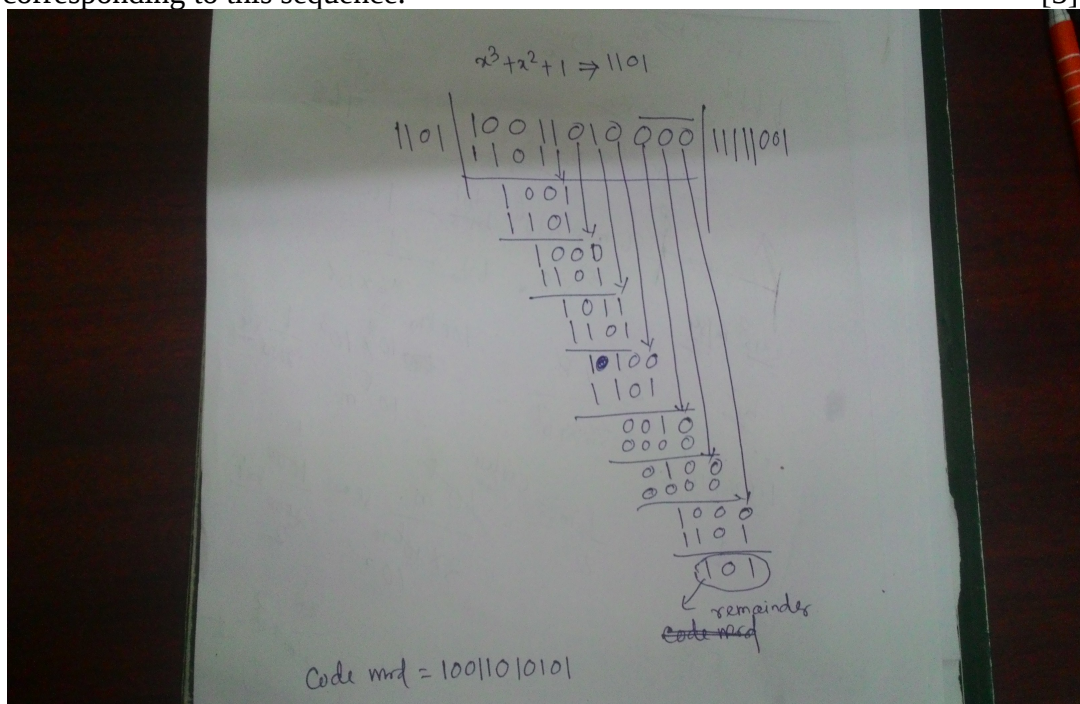 corresponding to this sequence. [3]
x³+x²+1 ⇒ 1101
1101 | 10011010000 | 11111001
1101
1001
1101
1000
1101
1011
1101
1100
1101
0010
0000
0100
0000
1000
1101
101
remainder
code word
Code word = 10011010101